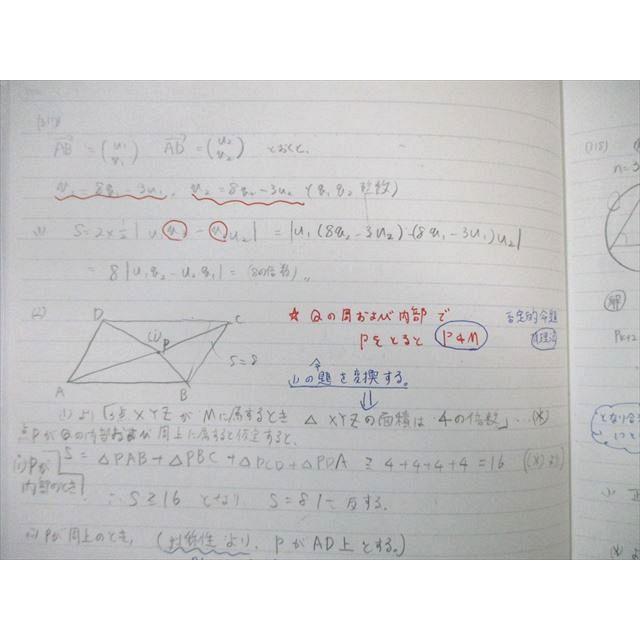 (317)
AB = (u₁ v₁) AD = (u₂ v₂) とおくと、
v₁ = 8q₁ - 3u₁, v₂ = 8q₂ - 3u₂ (q₁, q₂ 整数)
(1) S = 2×½ | u₁v₂ - v₁u₂ | = | u₁(8q₂ - 3u₂) - (8q₁ - 3u₁)u₂ |
= 8 | u₁q₂ - u₂q₁ | = (8の倍数)
(2)
D
C
(i) P
S = 8
A
B
★ Qの周および内部で
Pをとると P∉M
否定的命題
背理法
(1)の題を変換する。
(1)より「3点XYZがMに属するとき △XYZの面積は4の倍数」…(*)
点PがQの内部および周上に属すると仮定すると、
i) Pが内部のとき
S = △PAB + △PBC + △PCD + △PDA ≧ 4+4+4+4 = 16 ((*)より)
∴ S≧16 となり S=8に反する。
ii) Pが周上のとき, (対称性より, PがAD上とする。)
(318)
n=3
解
となり合う